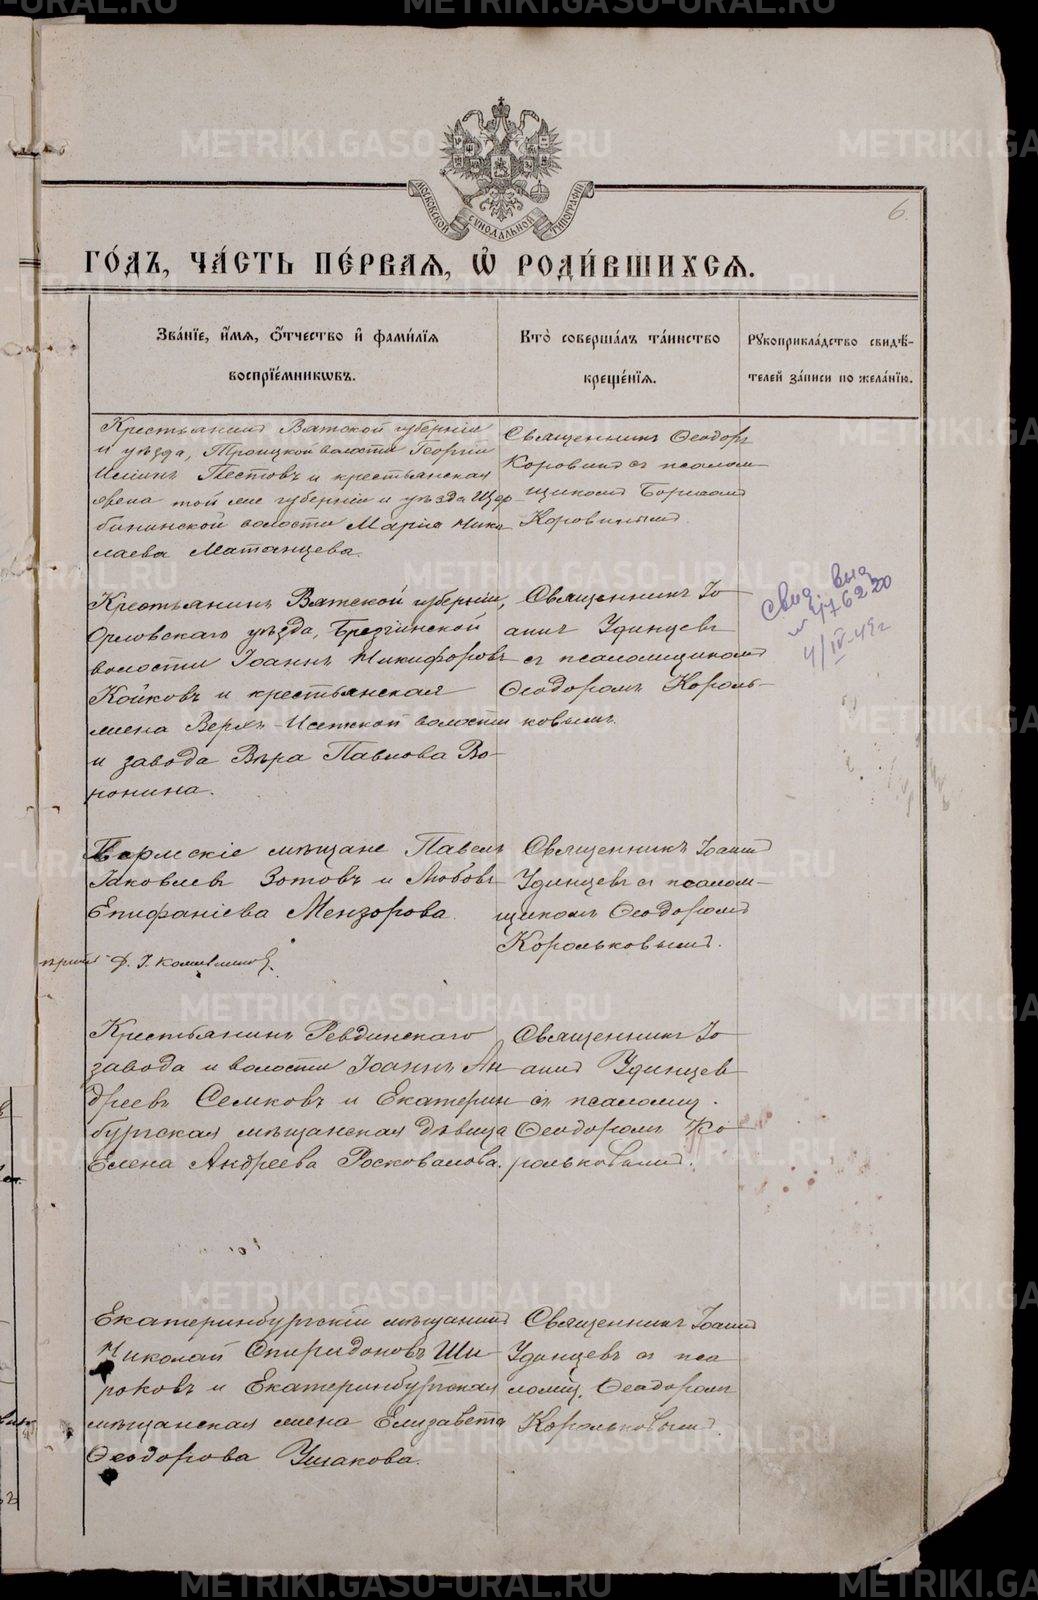 МОСКОВСКОЙ СУНОДАЛЬНОЙ ТИПОГРАФІИ
6.
ГО́ДЪ, ЧА́СТЬ ПЕ́РВАЯ, Ѽ РОДИ́ВШИХСЯ.
Зва́ніе, и́мя, ѻ́тчество и҆ фами́лія
воспріе́мникѡвъ.
Кто̀ соверша́лъ та́инство
креще́нія.
Рꙋкоприкла́дство свидѣ́-
телей за́писи по жела́нію.
Крестьянинъ Вятской губерніи
и уѣзда, Троицкой волости Георгій
Иліинъ Тестовъ и крестьянская
жена той же губерніи и уѣзда Щер
бининской волости Марія Нико
лаева Матанцева.
Священникъ Ѳеодоръ
Коровинъ съ псалом-
щикомъ
Коровинымъ.
Крестьянинъ Вятской губерніи,
Орловскаго уѣзда,
волости Іоаннъ Никифоровъ
Койковъ и крестьянская
жена Верхъ-Исетской волости
и завода Вѣра Павлова Во-
ронина.
Священникъ Іо-
аннъ Удинцевъ
съ псаломщикомъ
Ѳеодоромъ Король-
ковымъ.
Свид. выд.
4/IV-49г
Пермскіе мѣщане Павелъ
Іаковлевъ Зотовъ и Любовь
Епифаніева Мензорова.
Священникъ Іоаннъ
Удинцевъ съ псалом-
щикомъ Ѳеодоромъ
Корольковымъ.
Крестьянинъ Ревдинскаго
завода и волости Іоаннъ Ан
дреевъ Семковъ и Екатерин
бургская мѣщанская дѣвица
Елена Андреева Росковалова.
Священникъ Іо-
аннъ Удинцевъ
съ псаломщ.
Ѳеодоромъ Ко-
рольковымъ.
Екатеринбургскій мѣщанинъ
Николай Спиридоновъ Ши-
роковъ и Екатеринбургская
мѣщанская жена Елизавета
Ѳеодорова Ушакова.
Священникъ Іоаннъ
Удинцевъ съ пса-
ломщ. Ѳеодоромъ
Корольковымъ.
METRIKI.GASO-URAL.RU